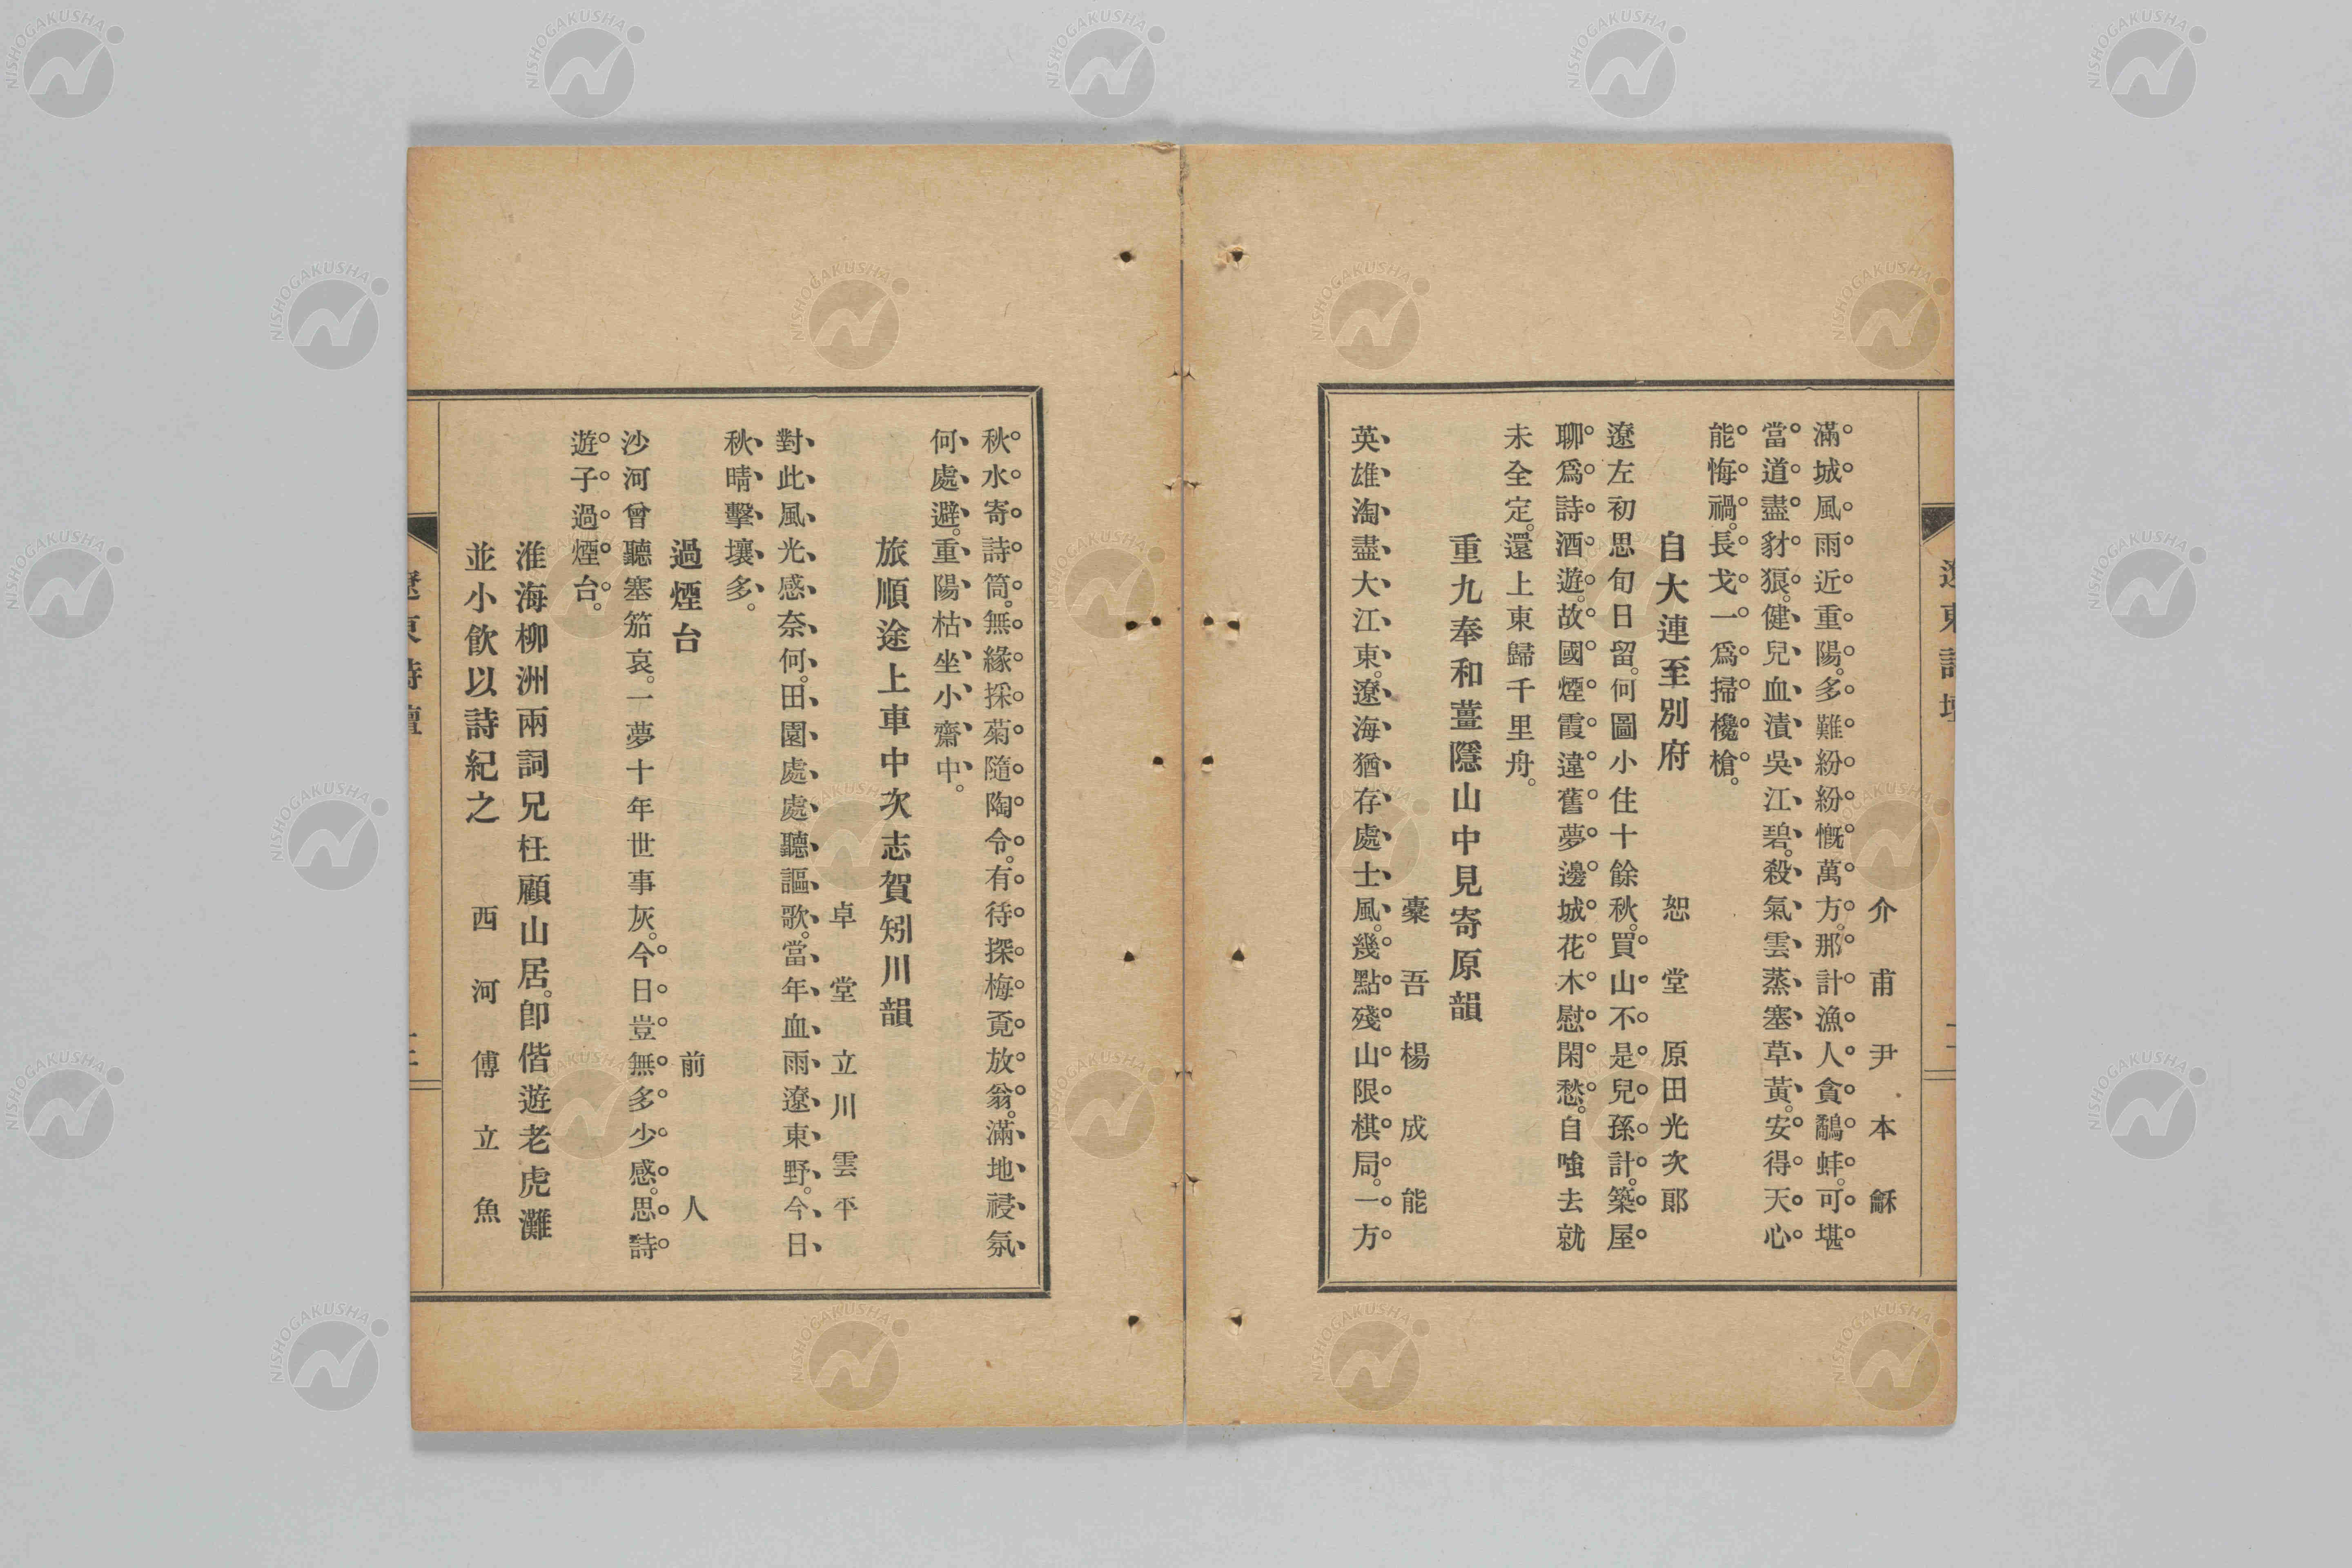 介甫尹本龢
滿城風雨近重陽。多難紛紛慨萬方。那計漁人貪鷸蚌。可堪
當道盡豺狼。健兒血漬吳江碧。殺氣雲蒸塞草黃。安得天心
能悔禍。長戈一爲掃欃槍。
自大連至別府　恕堂　原田光次郞
遼左初思旬日留。何圖小住十餘秋。買山不是兒孫計。築屋
聊爲詩酒遊。故國煙霞違舊夢。邊城花木慰閑愁。自嗤去就
未全定。還上東歸千里舟。
重九奉和薑隱山中見寄原韻
橐吾楊成能
英雄淘盡大江東。遼海猶存處士風。幾點殘山限棋局。一方
秋水寄詩筒。無緣採菊隨陶令。有待探梅覓放翁。滿地祲氛
何處避。重陽枯坐小齋中。
旅順途上車中次志賀矧川韻
卓堂　立川雲平
對此風光感奈何。田園處處聽謳歌。當年血雨遼東野。今日
秋晴擊壤多。
過煙台　前人
沙河曾聽塞笳哀。一夢十年世事灰。今日豈無多少感。思詩
遊子過煙台。
淮海柳洲兩詞兄枉顧山居。卽偕遊老虎灘
並小飮以詩紀之　西河傅立魚
遼東詩壇
NISHOGAKUSHA